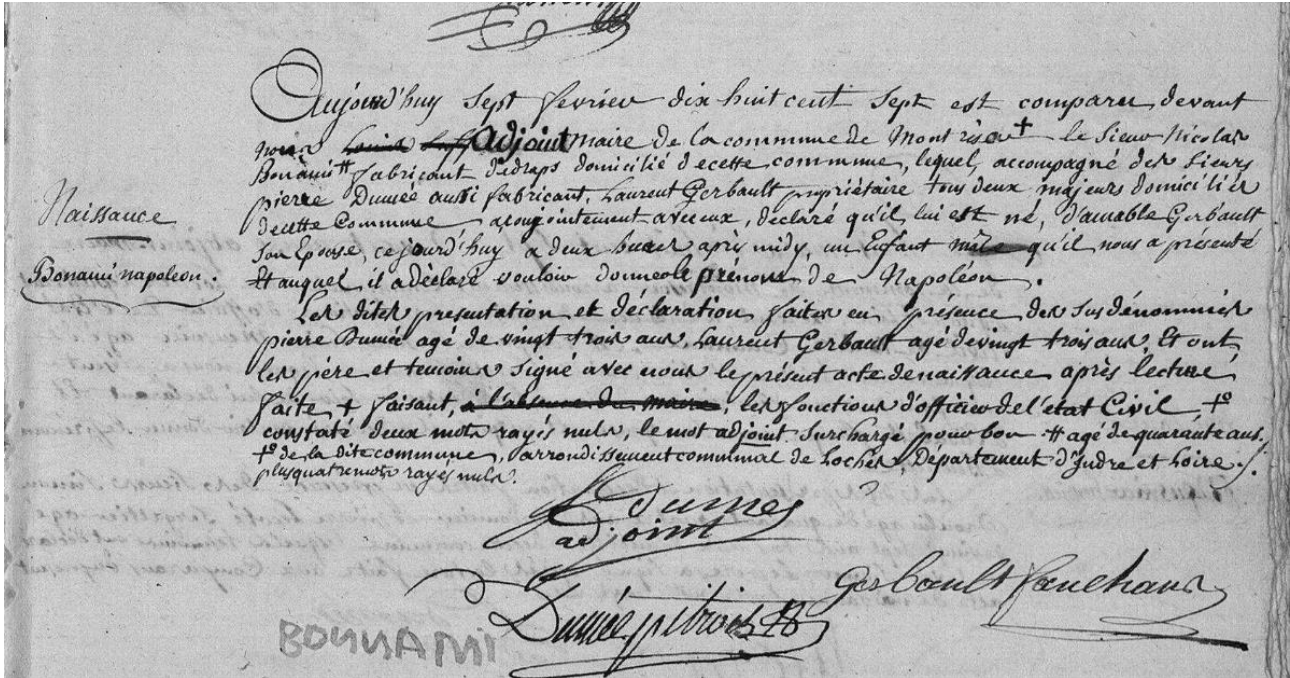 Naissance
Bonami napoléon.
Aujourd'huy Sept fevrier dix huit cent Sept est comparu devant
nous adjoint maire de la commune de Montrésor + le Sieur Nicolas
Bonami # fabricant dedraps domicilié decette commune, lequel, accompagné des Sieurs
pierre Dumée aussi fabricant, Laurent Gerbault propriétaire tous deux majeurs domiciliés
decette Commune, a conjointement avec eux, déclaré qu'il lui est né, d'amable Gerbault
Son Epouse, cejourd'huy a deux heures après midy, un Enfant mâle qu'il nous a présenté
Et auquel il a déclaré vouloir donner le prénom de Napoléon.
Les dites presentation et déclaration faites en présence des Susdénommés
pierre Dumée agé de vingt trois ans, Laurent Gerbault agé de vingt trois ans, Et ont
les père et temoins Signé avec nous le présent acte de naissance après lecture
faite + faisant, à l'absence du maire, les fonctions d'officier de l'état Civil, +o
constaté deux mots rayés nuls, le mot adjoint Surchargé pour bon # agé de quarante ans.
+o de la dite commune, arrondissement communal de Loches, Département d'Indre et Loire.
plus quatre mots rayés nuls.
Dumée
adjoint
Gerbault
Dumée
BONNAMI